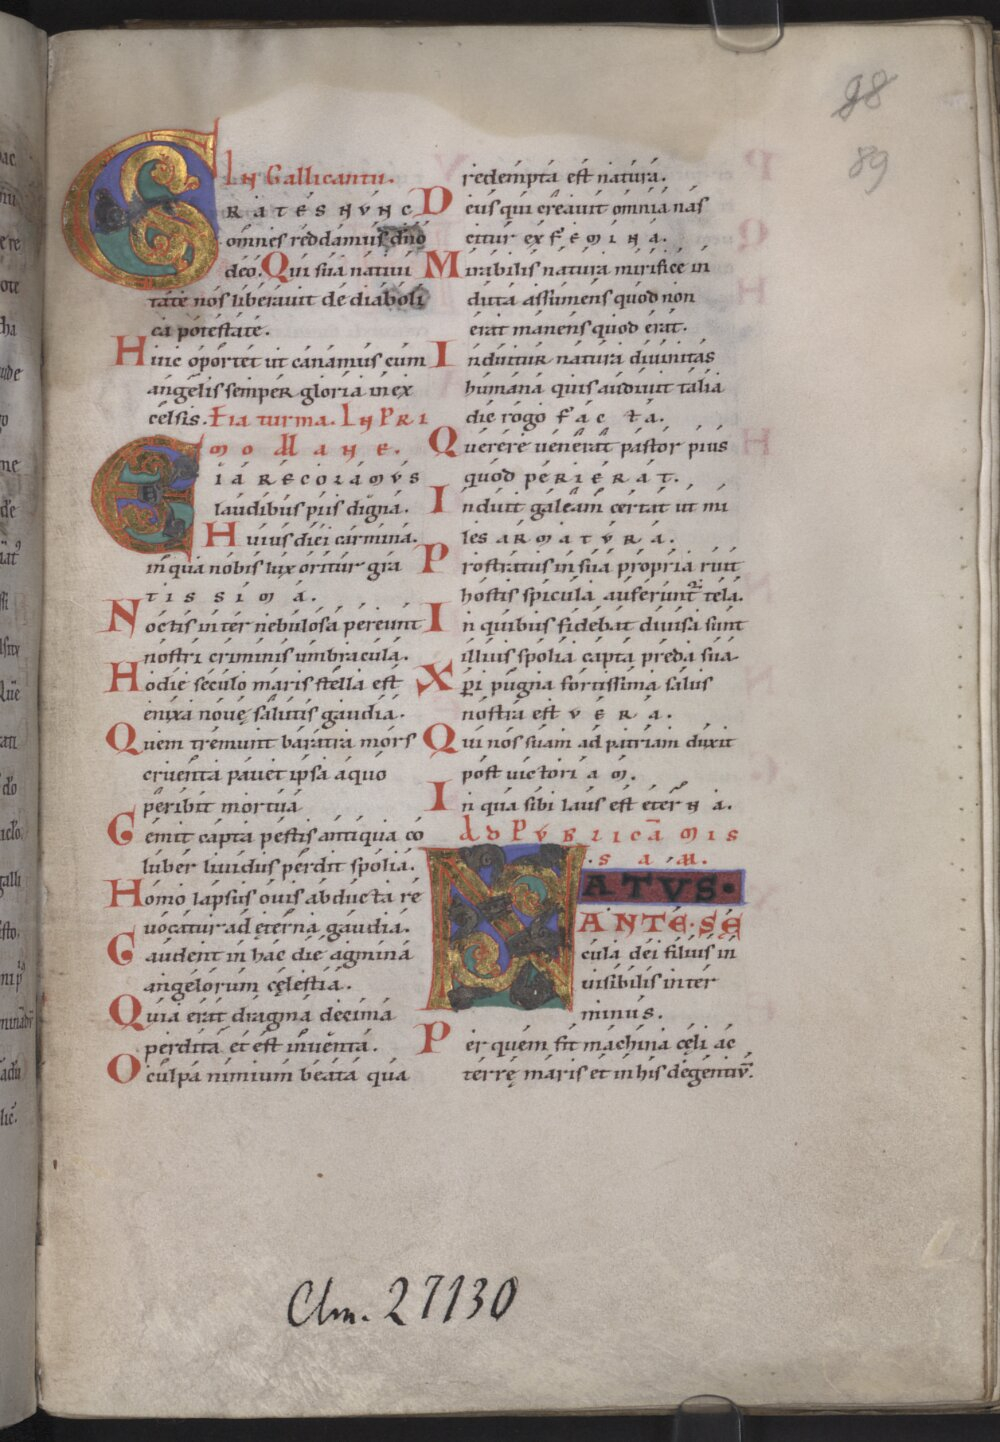 98
89
In Gallicantu.
GRATES NUNC
omnes reddamus dño
deo. Qui sua nativi
tate nos liberavit de diaboli
ca potestate.
Hinc oportet ut canamus cum
angelis semper gloria in ex
celsis. Eia turma. In Pri
mo Mane.
EIA RECOLAMUS
laudibus piis digna.
Huius diei carmina.
in qua nobis lux oritur gra
tissima.
Noctis inter nebulosa pereunt
nostri criminis umbracula.
Hodie seculo maris stella est
enixa novę salutis gaudia.
Quem tremunt baratra mors
cruenta pavet ipsa aquo
peribit mortua
Gemit capta pestis antiqua co
luber lividus perdit spolia.
Homo lapsus ovis abducta re
vocatur ad ęterna gaudia.
Gaudent in hac die agmina
angelorum cęlestia.
Quia erat dragma decima
perdita et est inventa.
O culpa nimium beata qua
redempta est natura.
Deus qui creavit omnia nas
citur ex femina.
Mirabilis natura mirifice in
duta assumens quod non
erat manens quod erat.
Induitur natura divinitas
humana quis audivit talia
dic rogo facta.
Querere venerat pastor pius
quod perierat.
Induit galeam certat ut mi
les armatura.
Prostratus in sua propria ruit
hostis spicula auferunt̄ tela.
In quibus fidebat divisa sunt
illius spolia capta preda sua.
Xp̄i pugna fortissima salus
nostra est vera.
Qui nos suam ad patriam duxit
post victoriam.
In qua sibi laus est eterna.
Ad Publicā mis
sam.
NATUS.
ANTE. SE
cula dei filius in
visibilis inter
minus.
Per quem fit machina cęli ac
terrę maris et in his degentiū.
Clm. 27130